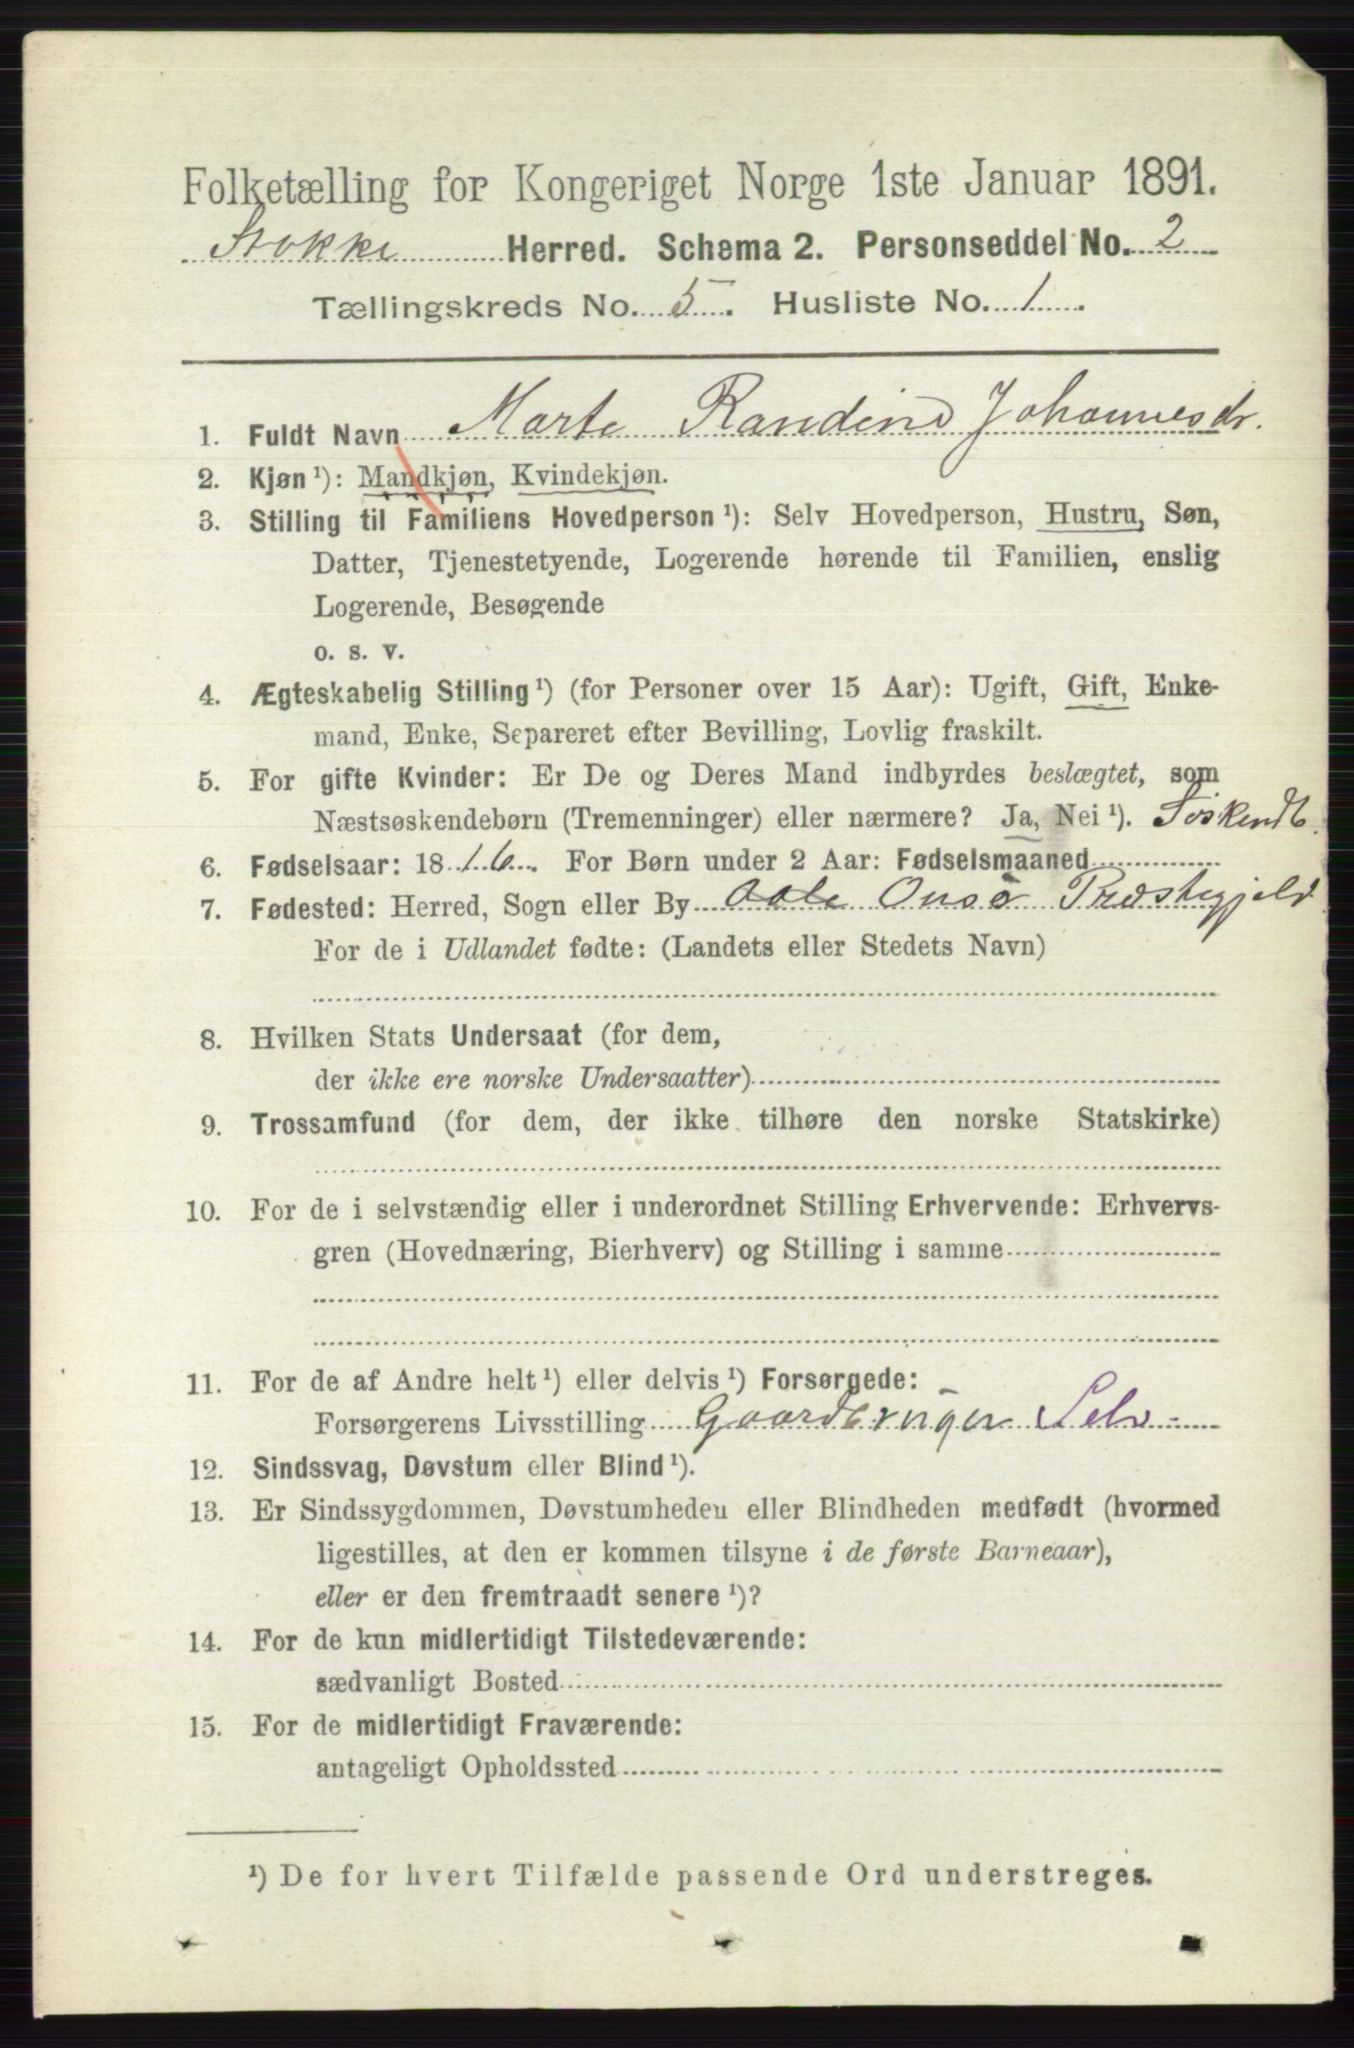 Folketælling for Kongeriget Norge 1ste Januar 1891.
Stokke Herred. Schema 2. Personseddel No. 2
Tællingskreds No. 5. Husliste No. 1.
1. Fuldt Navn Marte Randine Johannesdr.
2. Kjøn ¹): Mandkjøn, Kvindekjøn.
3. Stilling til Familiens Hovedperson ¹): Selv Hovedperson, Hustru, Søn,
Datter, Tjenestetyende, Logerende hørende til Familien, enslig
Logerende, Besøgende
o. s. v.
4. Ægteskabelig Stilling ¹) (for Personer over 15 Aar): Ugift, Gift, Enke-
mand, Enke, Separeret efter Bevilling, Lovlig fraskilt.
5. For gifte Kvinder: Er De og Deres Mand indbyrdes beslægtet, som
Næstsøskendebørn (Tremenninger) eller nærmere? Ja, Nei ¹). Søskendb.
6. Fødselsaar: 1816. For Børn under 2 Aar: Fødselsmaaned
7. Fødested: Herred, Sogn eller By Onsø Præstegjeld
For de i Udlandet fødte: (Landets eller Stedets Navn)
8. Hvilken Stats Undersaat (for dem,
der ikke ere norske Undersaatter)
9. Trossamfund (for dem, der ikke tilhøre den norske Statskirke)
10. For de i selvstændig eller i underordnet Stilling Erhvervende: Erhvervs-
gren (Hovednæring, Bierhverv) og Stilling i samme
11. For de af Andre helt ¹) eller delvis ¹) Forsørgede:
Forsørgerens Livsstilling Gaardbruger Selv
12. Sindssvag, Døvstum eller Blind ¹).
13. Er Sindssygdommen, Døvstumheden eller Blindheden medfødt (hvormed
ligestilles, at den er kommen tilsyne i de første Barneaar),
eller er den fremtraadt senere ¹)?
14. For de kun midlertidigt Tilstedeværende:
sædvanligt Bosted
15. For de midlertidigt Fraværende:
antageligt Opholdssted
¹) De for hvert Tilfælde passende Ord understreges.